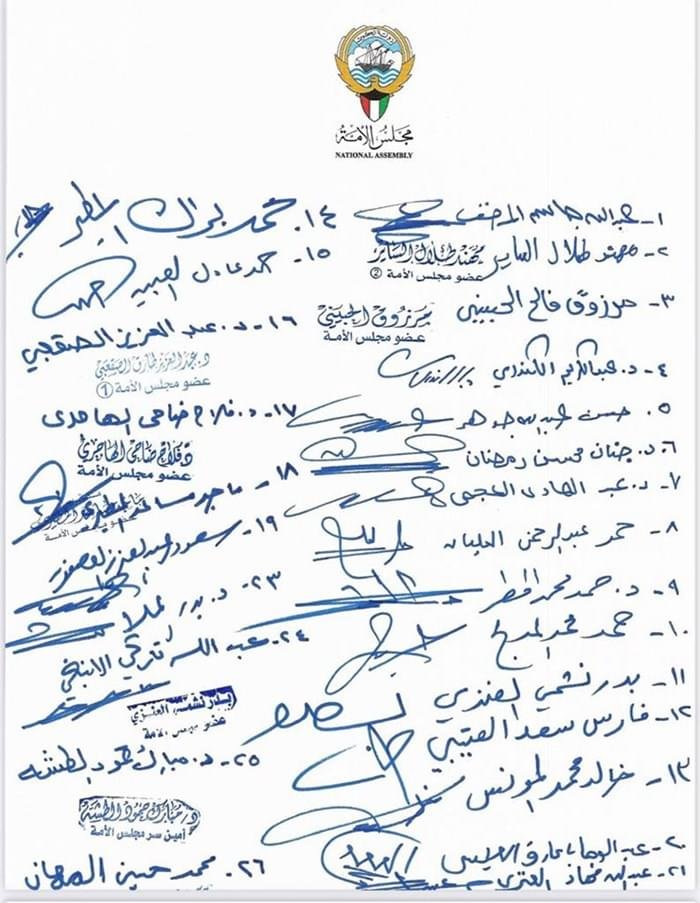 دولة الكويت
مجلس الأمة
NATIONAL ASSEMBLY
١- عبدالله جاسم المضف
٢- مهند طلال الساير
مهند طلال الساير
عضو مجلس الأمة ②
٣- مرزوق فالح الحبيني
مرزوق الحبيني
عضو مجلس الأمة
٤- د. عبدالكريم الكندري
٥- حسن عبدالله جوهر
٦- د. جنان محسن رمضان
٧- د. عبد الهادي العجمي
٨- حمد عبدالرحمن العليان
٩- د. حمد محمد المطر
١٠- حمد محمد المدلج
١١- بدر نشمي العنزي
١٢- فارس سعد العتيبي
١٣- خالد محمد المونس
٢٠- عبدالوهاب عارف العيسى
٢١- عبدالله فهاد العنزي
١٤- محمد براك المطير
١٥- حمد عادل العبيد
١٦- د. عبد العزيز الصقعبي
د. عبد العزيز طارق الصقعبي
عضو مجلس الأمة ①
١٧- د. فلاح ضاحي الهاجري
د. فلاح ضاحي الهاجري
عضو مجلس الأمة
١٨- ماجد مساعد المطيري
١٩- سعود عبدالعزيز العصفور
٢٣- د. بدر الملا
٢٤- عبدالله تركي الانبعي
بدر نشمي العنزي
عضو مجلس الأمة
٢٥- د. مبارك حمود الطشه
د. مبارك حمود الطشة
أمين سر مجلس الأمة
٢٦- محمد حسين المهان